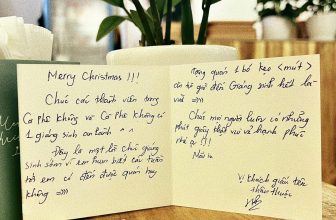 Merry Christmas !!!
Chúc các thành viên trong
Cà phê không và Cà phê không có
1 giáng sinh an lành ^^
Đây là một lá thư giáng
sinh sớm vì em hum biết cái tuần
nó em có đến được quán hay
không =)))
Trong quán 1 bó kẹo <mút>
giữ đến Giáng sinh hết la-
=)))
Chúc mọi người luôn có những
phút giây thật vui và hạnh phúc
nhé ạ !!!
Vị khách quán tên
thân thuộc